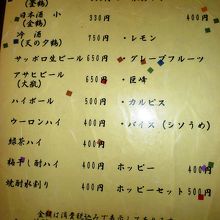 (釜鶴)
日本酒 小 330円 400円
(金鶴)
冷酒 750円 ・レモン
(天の夕鶴)
サッポロ生ビール 650円 ・グレープフルーツ
アサヒビール 650円 ・巨峰
(大瓶)
ハイボール 500円 ・カルピス
ウーロンハイ 400円 ・バイス(シソうめ)
緑茶ハイ 400円
梅干し酎ハイ 400円 ホッピー 400円
焼酎水割り 400円 ホッピーセット 500円
金額は消費税込みで表示しております